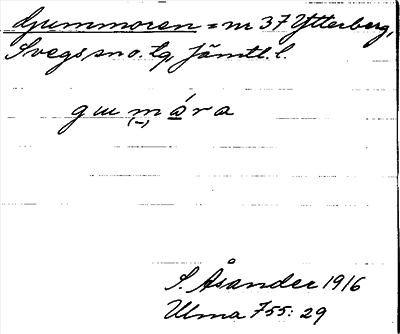 Gummoren = nr 37 Ytterberg,
Svegs sn o. tg, Jämtl. l.
gumára
(-)
S. Åsander 1916
Ulma 755: 29